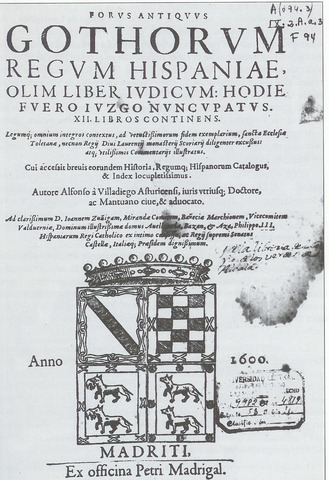 FORVS ANTIQVVS
GOTHORVM
REGVM HISPANIAE,
OLIM LIBER IVDICVM: HODIE
FVERO IVZGO NVNCVPATVS.
XII. LIBROS CONTINENS.
Legumq; omnium integros contextus, ad vetustissimorum fidem exemplarium, sanctæ Ecclesiæ
Toletanæ, necnon Regij Diui Laurentij monasterij Scorialis diligenter excussus
atq; vtilissimis Commentarijs illustratus.
Cui accessit breuis eorundem Historia, Regumq; Hispanorum Catalogus,
& Index locupletissimus.
Autore Alfonso à Villadiego Asturicensi, iuris vtriusq; Doctore,
ac Mantuano ciue, & aduocato.
Ad clarissimum D. Ioannem Zuñigam, Miranda Comitem, Bañecia Marchionem, Vicecomitem
Valduernia, Dominum illustrissimæ domus Auellaneda, Bazan, & Aza, Philippo III.
Hispaniarum Regi Catholico ex intimo consilijs, ac Regij supremi Senatus
Castella, Italiæq; Præsidem dignissimum.
A (094.3)
IX. 2. A. a. 3
F 94
Anno 1600.
MADRITI,
Ex officina Petri Madrigal.